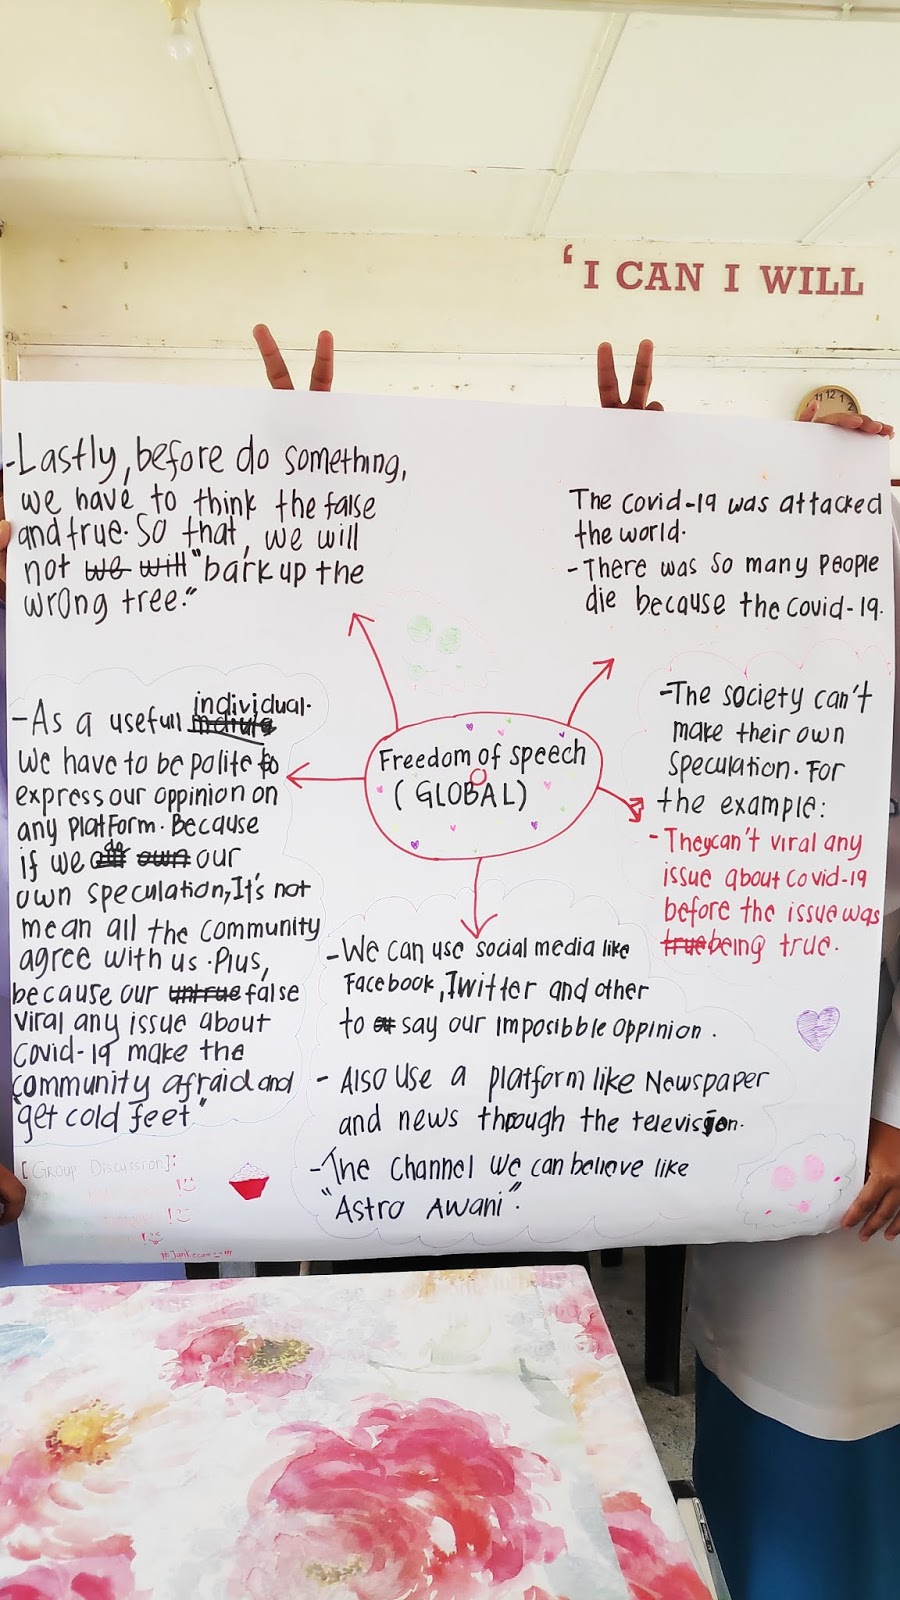 'I CAN I WILL
11 12 1
2
-Lastly, before do something,
we have to think the false
and true. So that, we will
not we will "bark up the
wrong tree."
The covid-19 was attacked
the world.
-There was so many people
die because the covid-19.
Freedom of speech
(GLOBAL)
-As a usefull individual.
We have to be polite to
express our oppinion on
any platform. Because
if we do own our
own speculation, It's not
mean all the community
agree with us. Plus,
because our untrue false
viral any issue about
Covid-19 make the
community afraid and
"get cold feet"
-The society can't
make their own
speculation. For
the example:
- They can't viral any
issue about covid-19
before the issue was
true being true.
-We can use social media like
Facebook, Twitter and other
to say our imposibble oppinion.
- Also use a platform like Newspaper
and news through the television.
-The channel we can believe like
"Astro Awani".
[Group Discussion]: